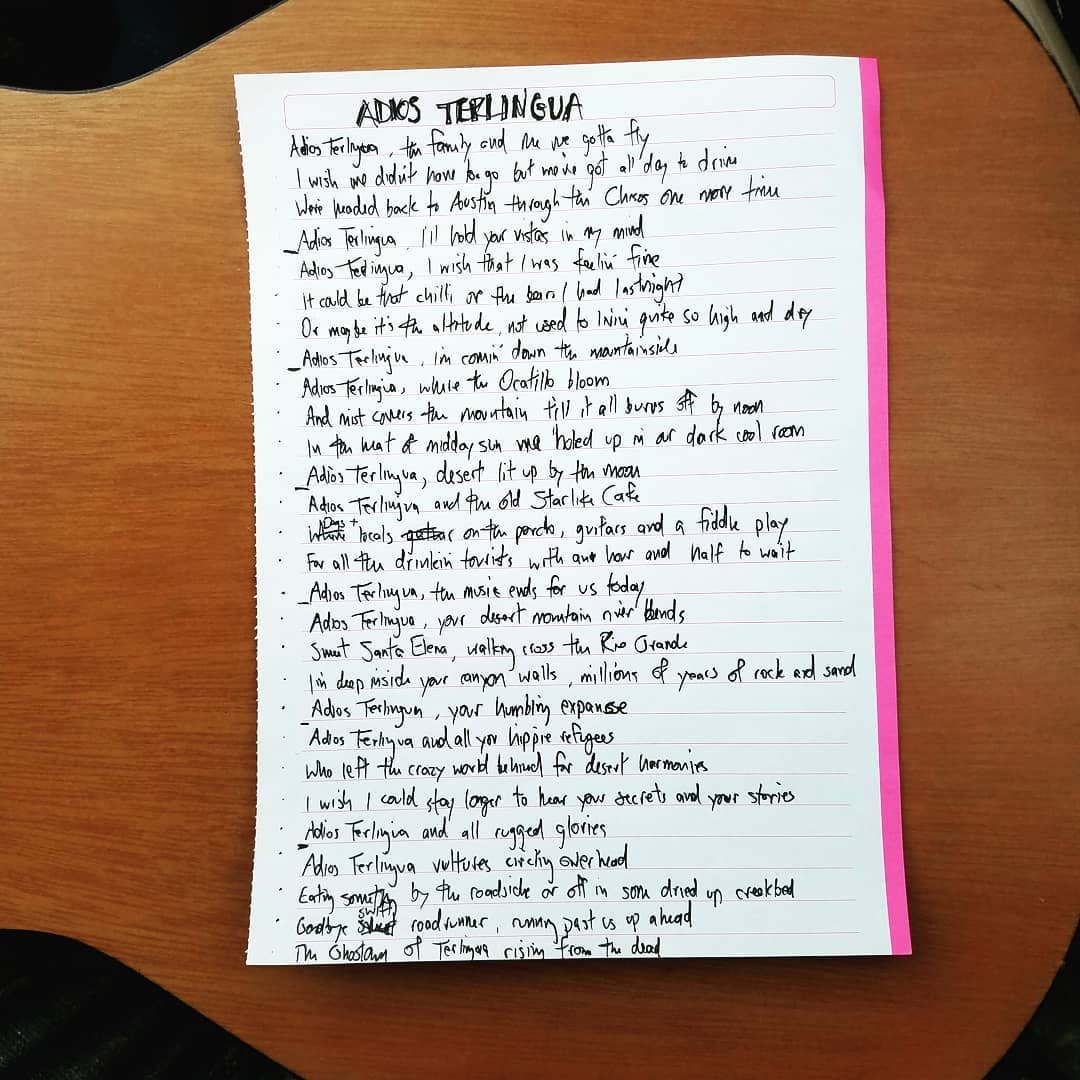 ADIOS TERLINGUA
Adios Terlingua, the family and me we gotta fly
I wish we didn't have to go but we've got all day to drive
We're headed back to Austin through the Chisos one more time
Adios Terlingua, I'll hold your vistas in my mind
Adios Terlingua, I wish that I was feelin' fine
It could be that chilli or the beers I had last night?
Or maybe it's the altitude, not used to livin' quite so high and dry
Adios Terlingua, I'm comin' down the mountainside
Adios Terlingua, where the Ocatillo bloom
And mist covers the mountain till it all burns off by noon
In the heat of midday sun we holed up in our dark cool room
Adios Terlingua, desert lit up by the moon
Adios Terlingua and the old Starlite Cafe
Dogs + locals on the porch, guitars and a fiddle play
For all the drinkin tourists with an hour and half to wait
Adios Terlingua, the music ends for us today
Adios Terlingua, your desert mountain river bends
Sweet Santa Elena, walking cross the Rio Grande
I'm deep inside your canyon walls, millions of years of rock and sand
Adios Terlingua, your humbling expanse
Adios Terlingua and all your hippie refugees
Who left the crazy world behind for desert harmonies
I wish I could stay longer to hear your secrets and your stories
Adios Terlingua and all rugged glories
Adios Terlingua vultures circling overhead
Eating something by the roadside or off in some dried up creekbed
Goodbye swift roadrunner, running past us up ahead
The Ghostown of Terlingua rising from the dead